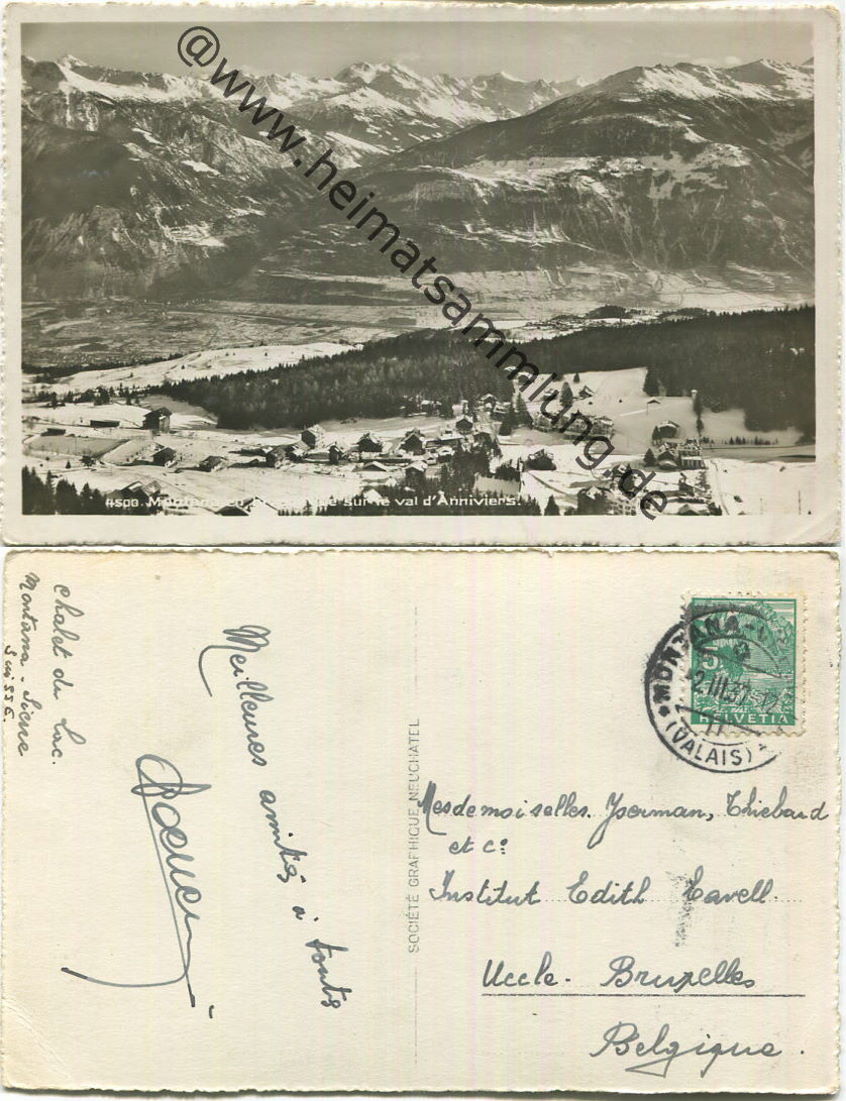 @www.heimatsammlung.de
4500. Montana et vue sur le val d'Anniviers.
Chalet du Lac.
Montana - Sierre
Suisse
Meilleures amitiés à toutes
SOCIÉTÉ GRAPHIQUE NEUCHATEL
MONTANA
2.III.37.-12
(VALAIS)
5
HELVETIA
Mesdemoiselles. Yserman, Thiebard
et Cº
Institut Edith Cavell.
Uccle. Bruxelles
Belgique.